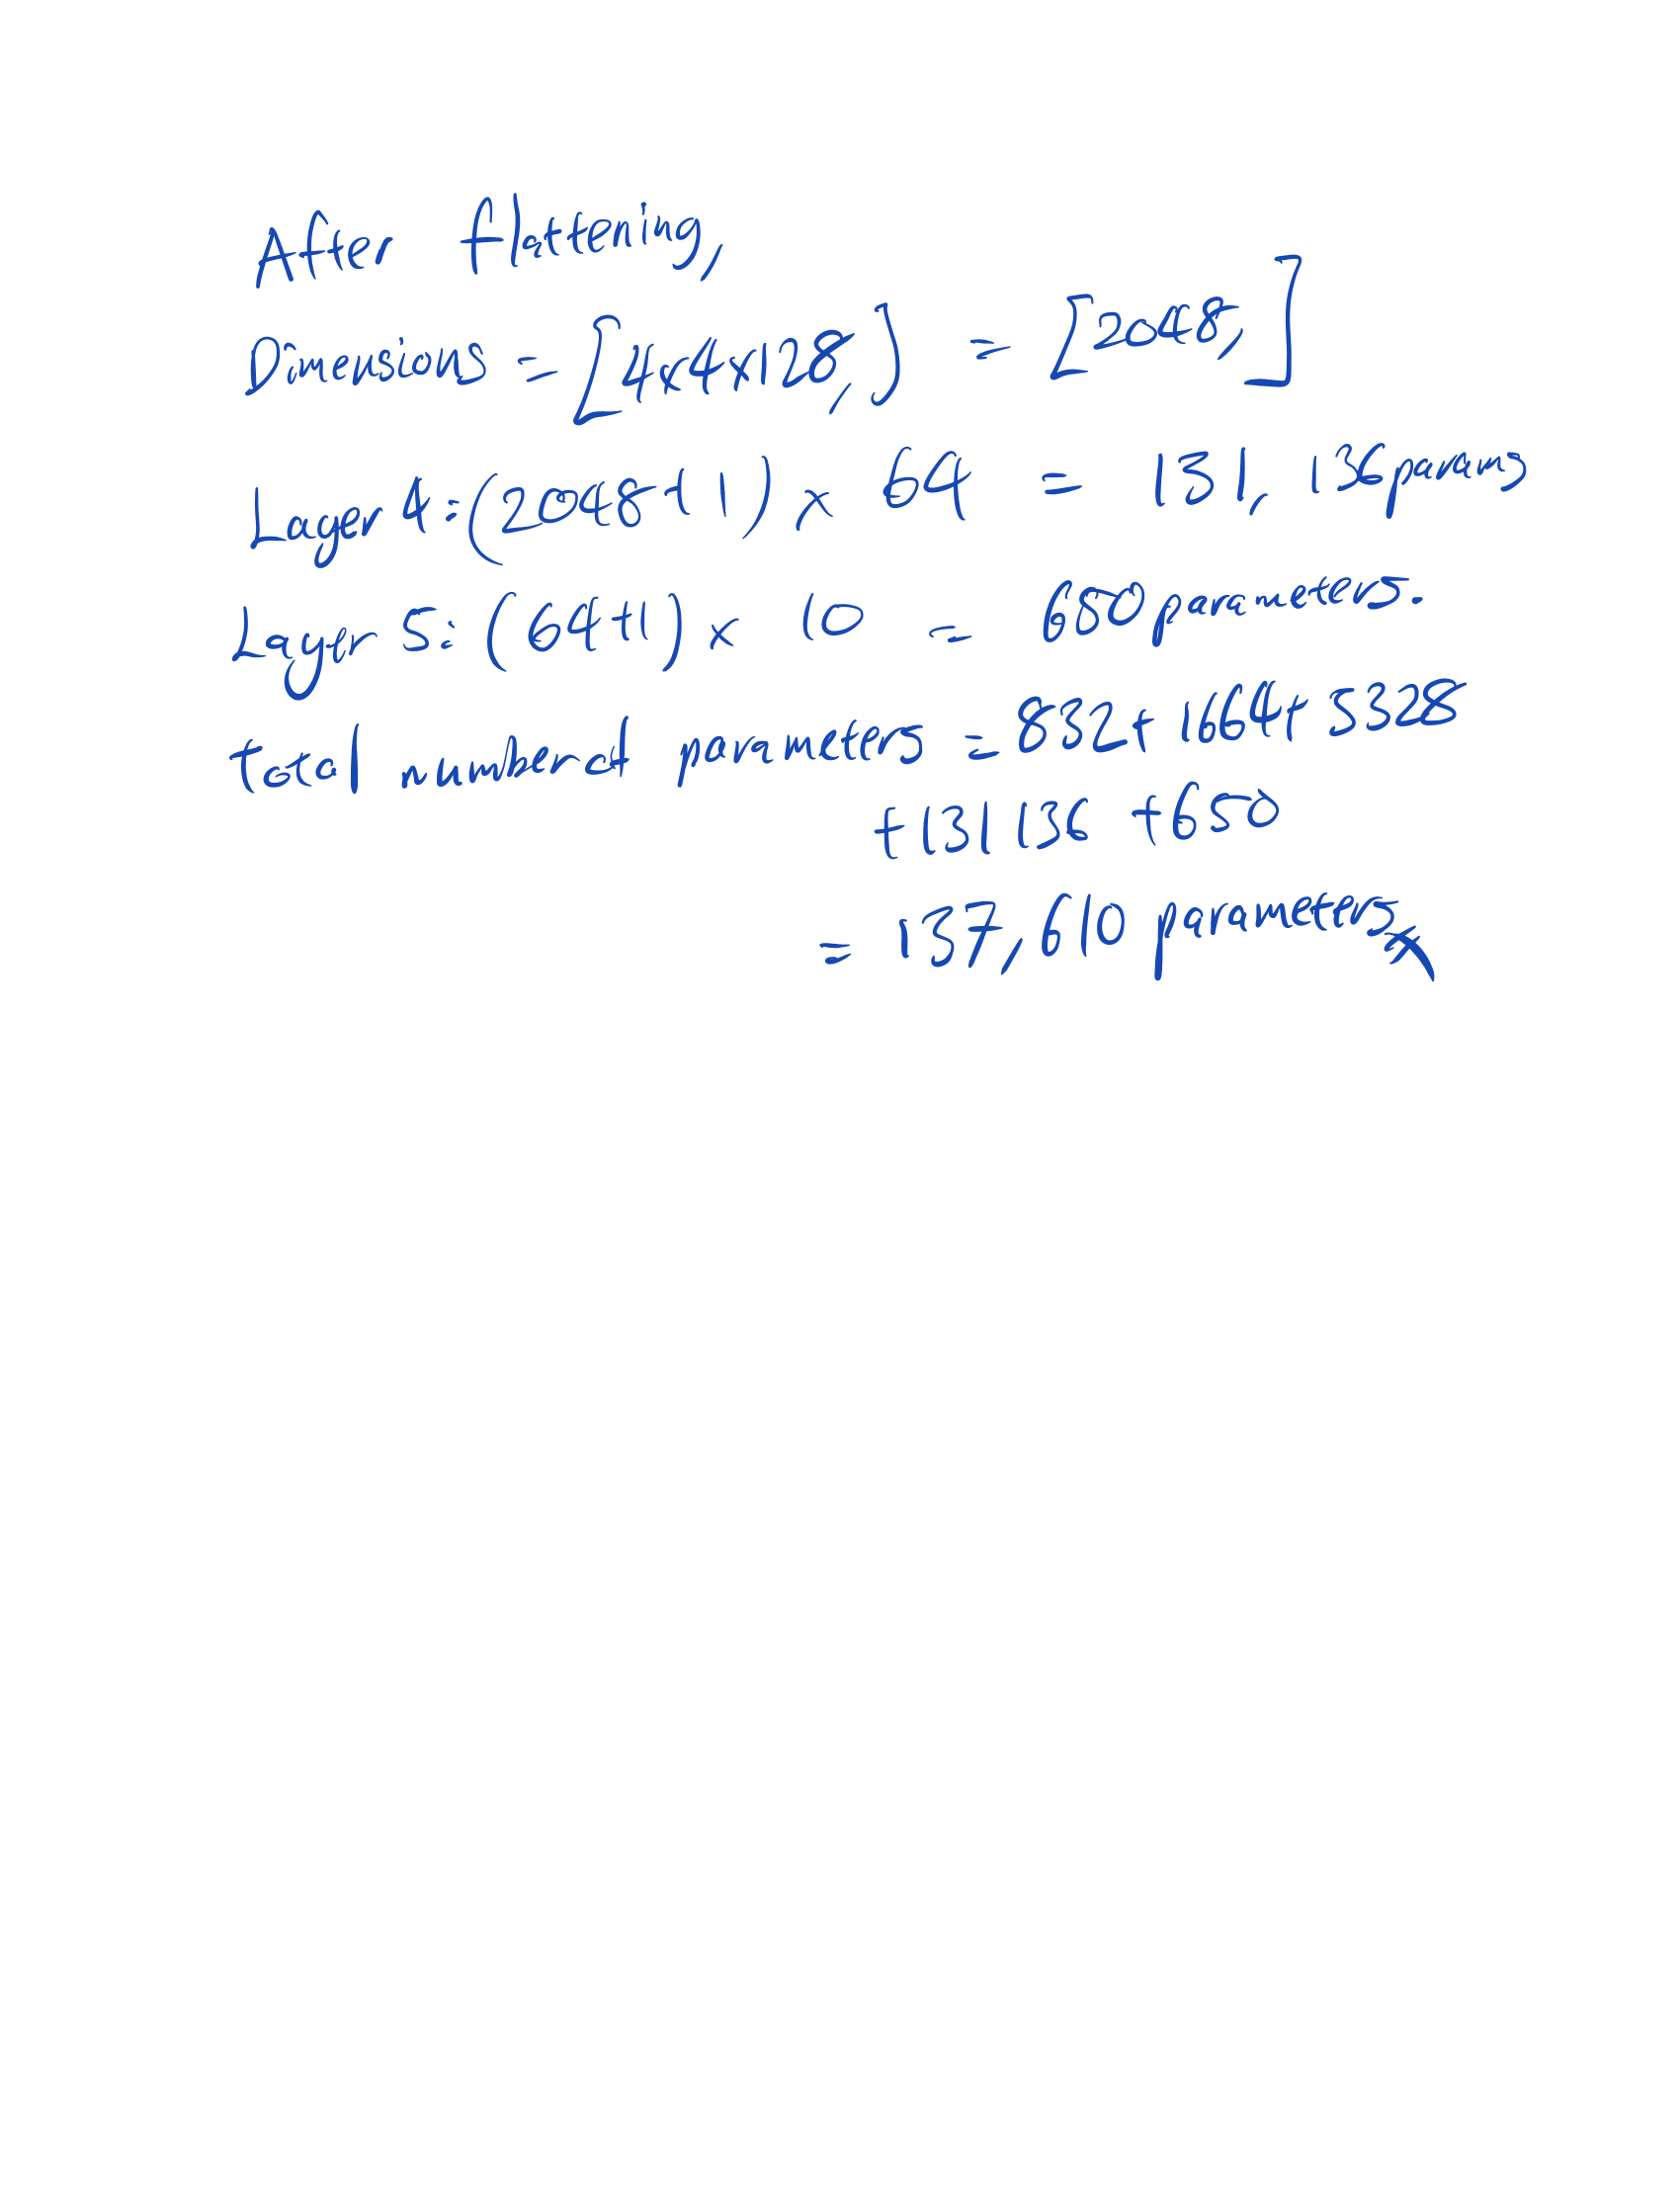 After flattening,
Dimensions = [4x4x128,] = [2048,]
Layer 4: (2048+1) x 64 = 131,136 params
Layer 5: (64+1) x 10 = 650 parameters.
total number of parameters = 832+1664+3328
+131136 +650
= 137,610 parameters